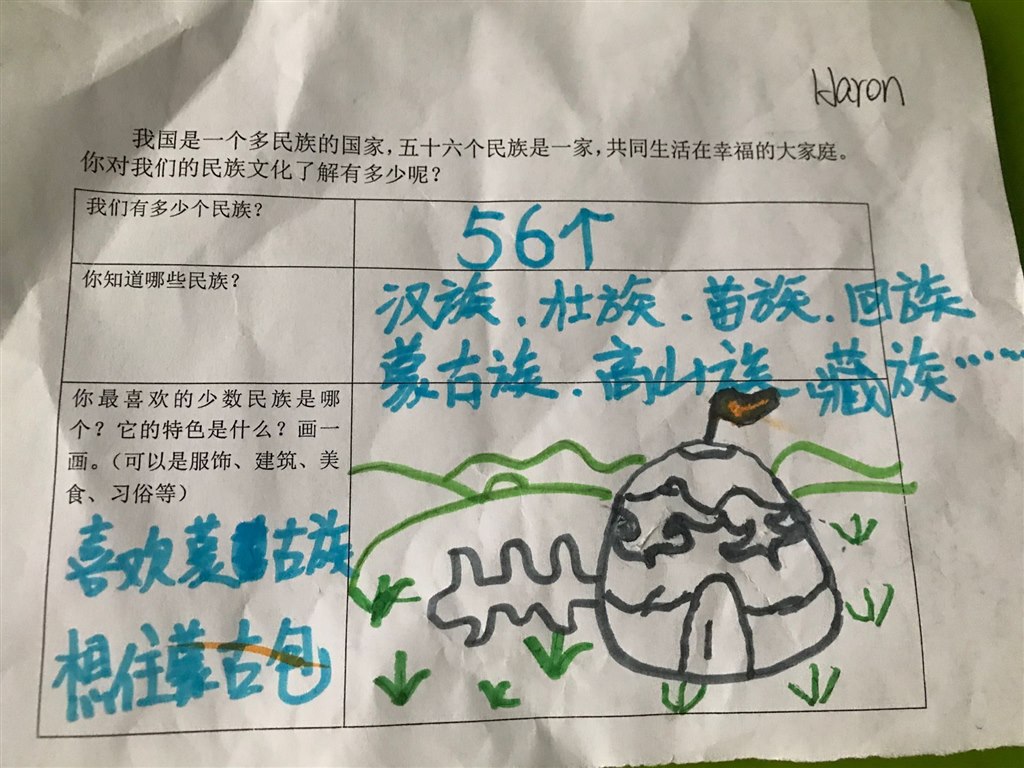 Haron
我国是一个多民族的国家，五十六个民族是一家，共同生活在幸福的大家庭。
你对我们的民族文化了解有多少呢？
我们有多少个民族？
56个
你知道哪些民族？
汉族、壮族、苗族、回族
蒙古族、高山族、藏族……
你最喜欢的少数民族是哪
个？它的特色是什么？画一
画。（可以是服饰、建筑、美
食、习俗等）
喜欢蒙古族
想住蒙古包